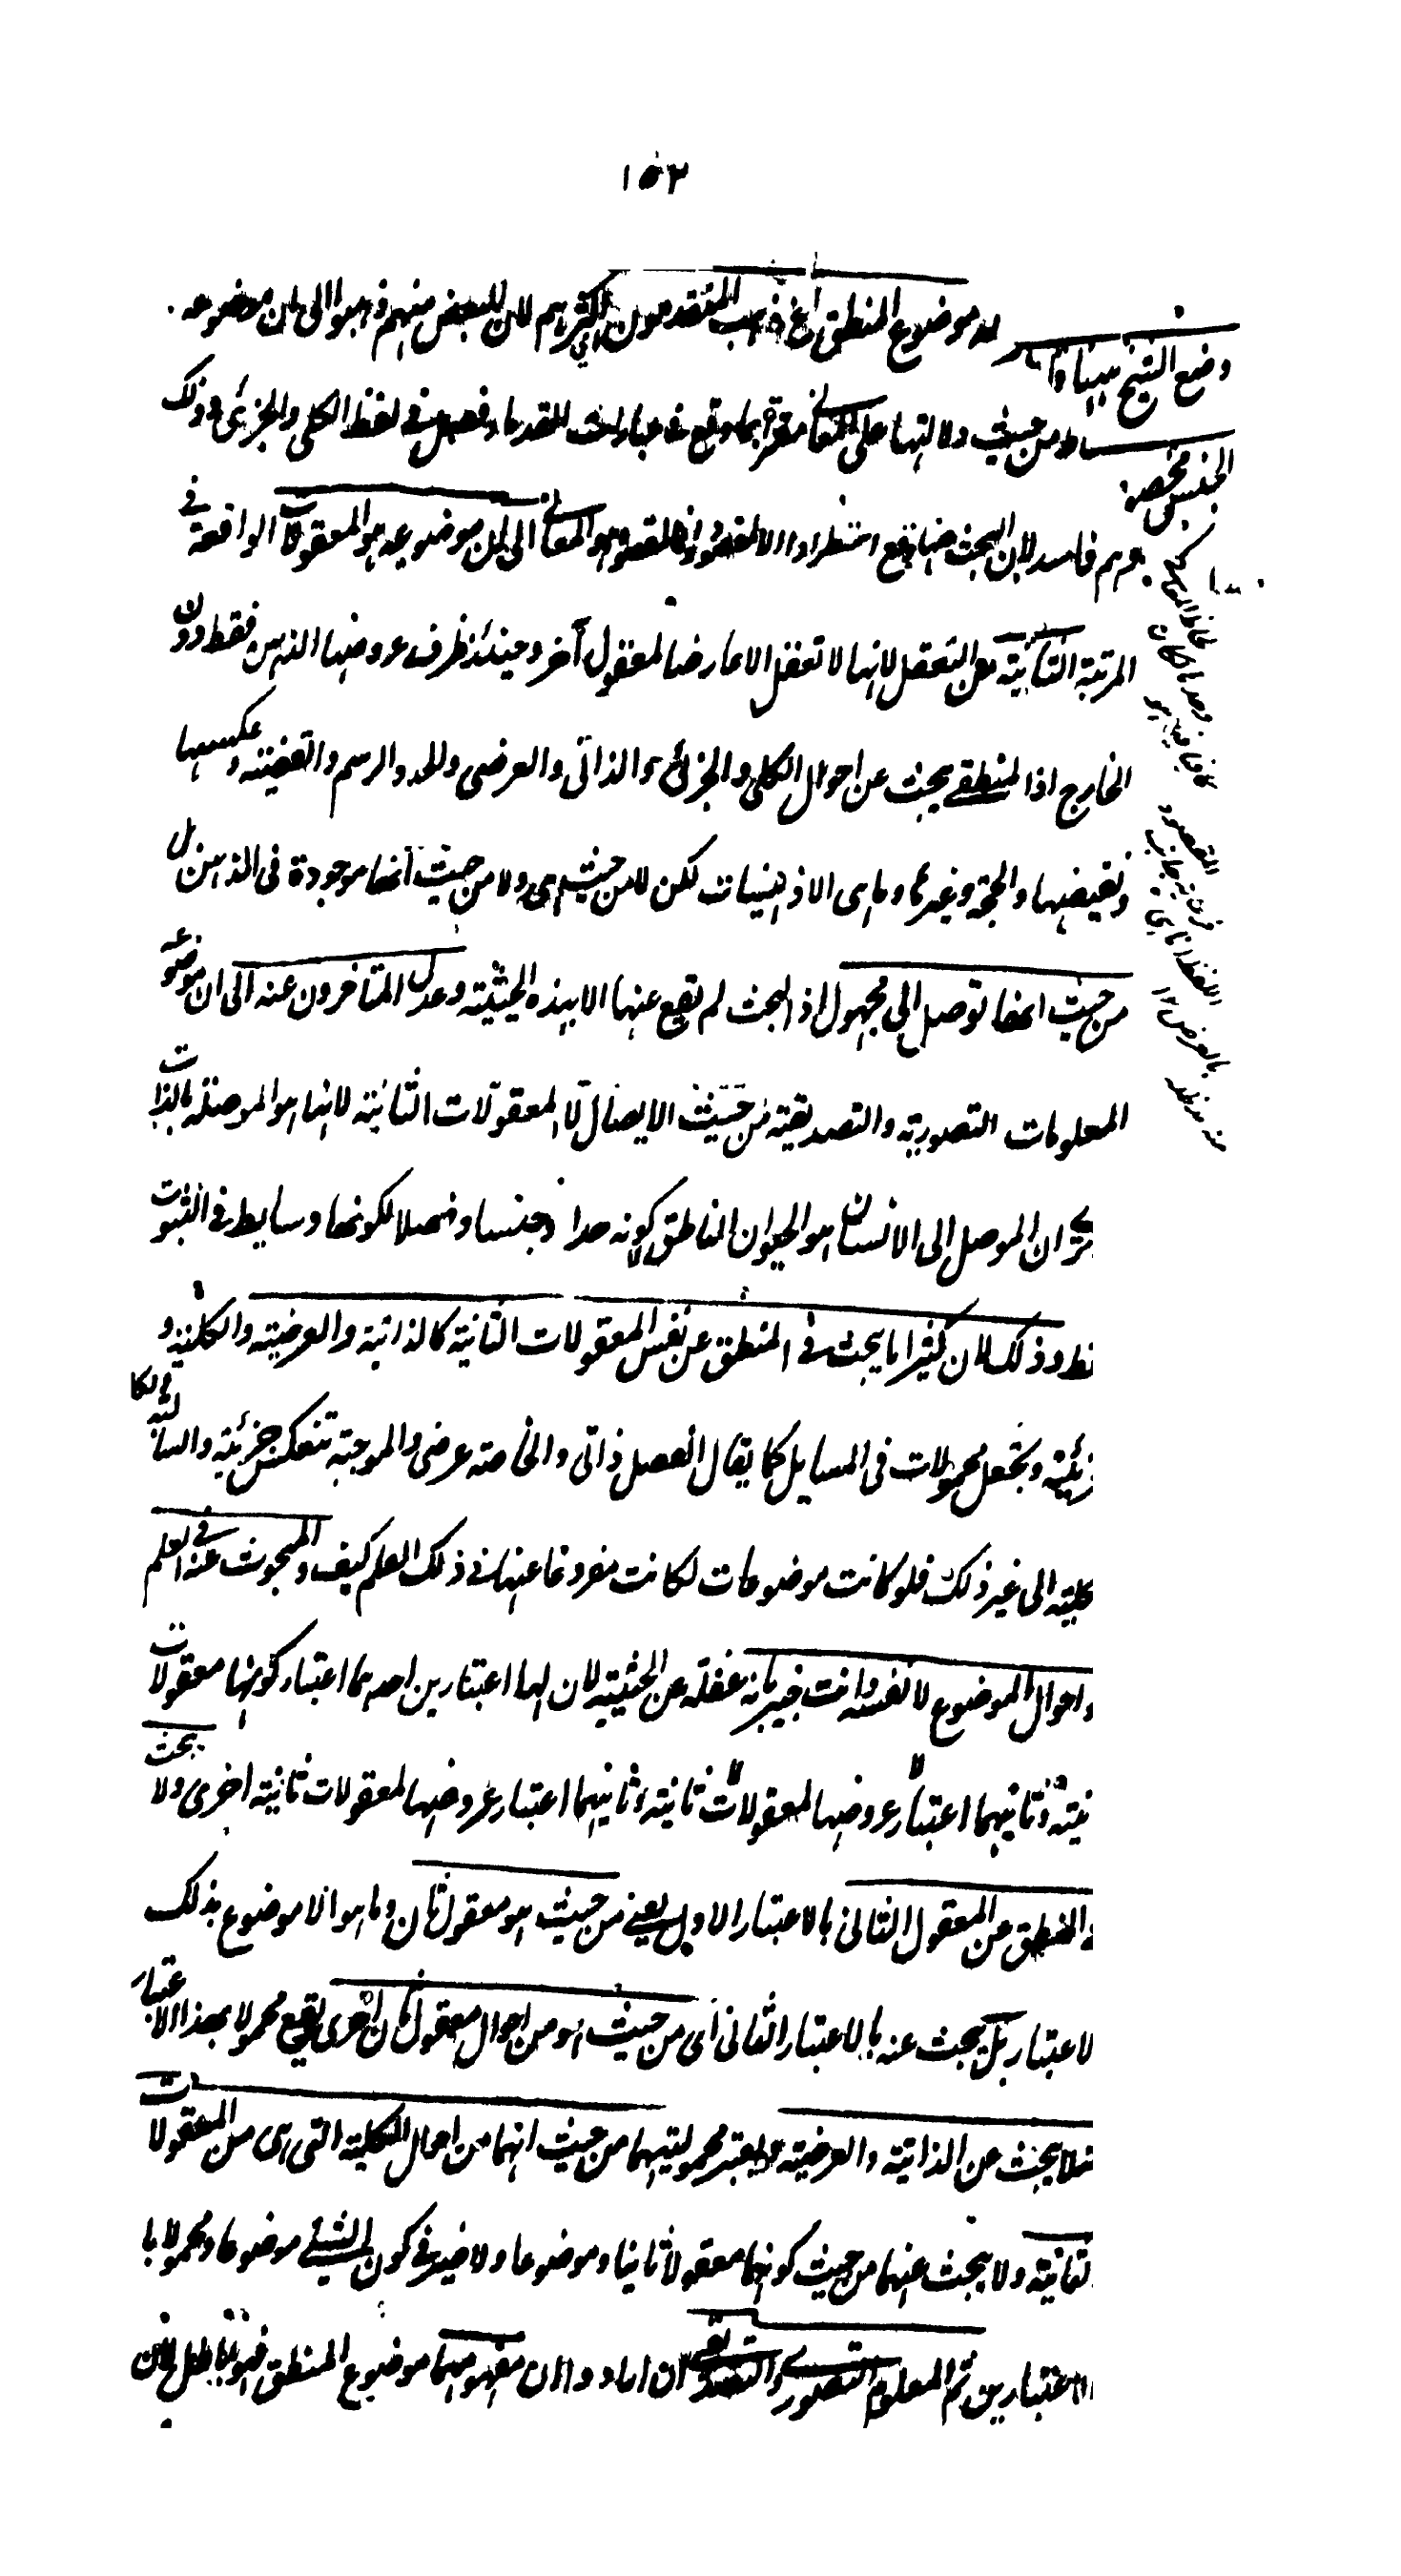 ١٥٢
موضوع المنطق الخ ذهب المتقدمون اي اكثرهم لان البعض منهم ذهبوا الى ان موضوعه
من حيث دلالتها على المعاني بما وقع في عبارات القدماء فصل في لفظ الكلي والجزئي وذلك
وهم فاسد لان البحث عنها وقع استطرادا الى ان موضوعه هو المعقولات الواقعة في
المرتبة الثانية من التعقل لانها لا تعقل الا عارضا لمعقول آخر وحينئذ ظرف عروضها الذهن فقط دون
الخارج اذ المنطقي يبحث عن احوال الكلي والجزئي والذاتي والعرضي والحد والرسم والقضية وعكسها
ونقيضها والحجة وغيرها وما هي الا ذهنيات لكن لا من حيث هي ولا من حيث انها موجودة في الذهن بل
من حيث انها توصل الى مجهول اذ البحث لم يقع عنها الا بهذه الحيثية وعدل المتاخرون عنه الى ان موضوعه
المعلومات التصورية والتصديقية من حيث الايصال لا المعقولات الثانية لانها هو الموصلة بالذات
ان الموصل الى الانسان هو الحيوان الناطق لا كونه حدا وجنسا وفصلا لكونها وسايط في الثبوت
فقط وذلك لان كثيرا ما يبحث في المنطق عن نفس المعقولات الثانية كالذاتية والعرضية والكلية و
الجزئية وتجعل محمولات في المسايل كما يقال الفصل ذاتي والخاصة عرضي والموجبة تنعكس جزئية والسالبة الكلية
كلية الى غير ذلك فلو كانت موضوعات لكانت مفروغا عنها في ذلك العلم كيف والمبحوث عنه في العلم
احوال الموضوع لا نفسه وانت خبير بانه غفلة عن الحيثية لان لها اعتبارين احدهما اعتبار كونها معقولات
ثانية وثانيهما اعتبار عروضها لمعقولات ثانية وثانيهما اعتبار عروضها لمعقولات ثانية اخرى ولا يبحث
في المنطق عن المعقول الثاني بالاعتبار الاول يعني من حيث هو معقول ثان وما هو الا موضوع بذلك
الاعتبار بل يبحث عنه بالاعتبار الثاني اي من حيث هو من احوال معقول ثان اخرى يقع محمولا بهذا الاعتبار
مثلا يبحث عن الذاتية والعرضية ويعتبر محموليتهما من حيث انهما من احوال الكلية التي هي من المعقولات
الثانية ولا يبحث عنهما من حيث كونهما معقولا ثانيا وموضوعا ولا ضير في كون الشيء موضوعا ومحمولا با
لاعتبارين ثم المعلوم التصوري والتصديقي ان ارادوا ان مفهومهما موضوع المنطق فهو باطل لان
وضع الشيخ
الجنس
المقصود
اللفظ
بالعرض ١٢